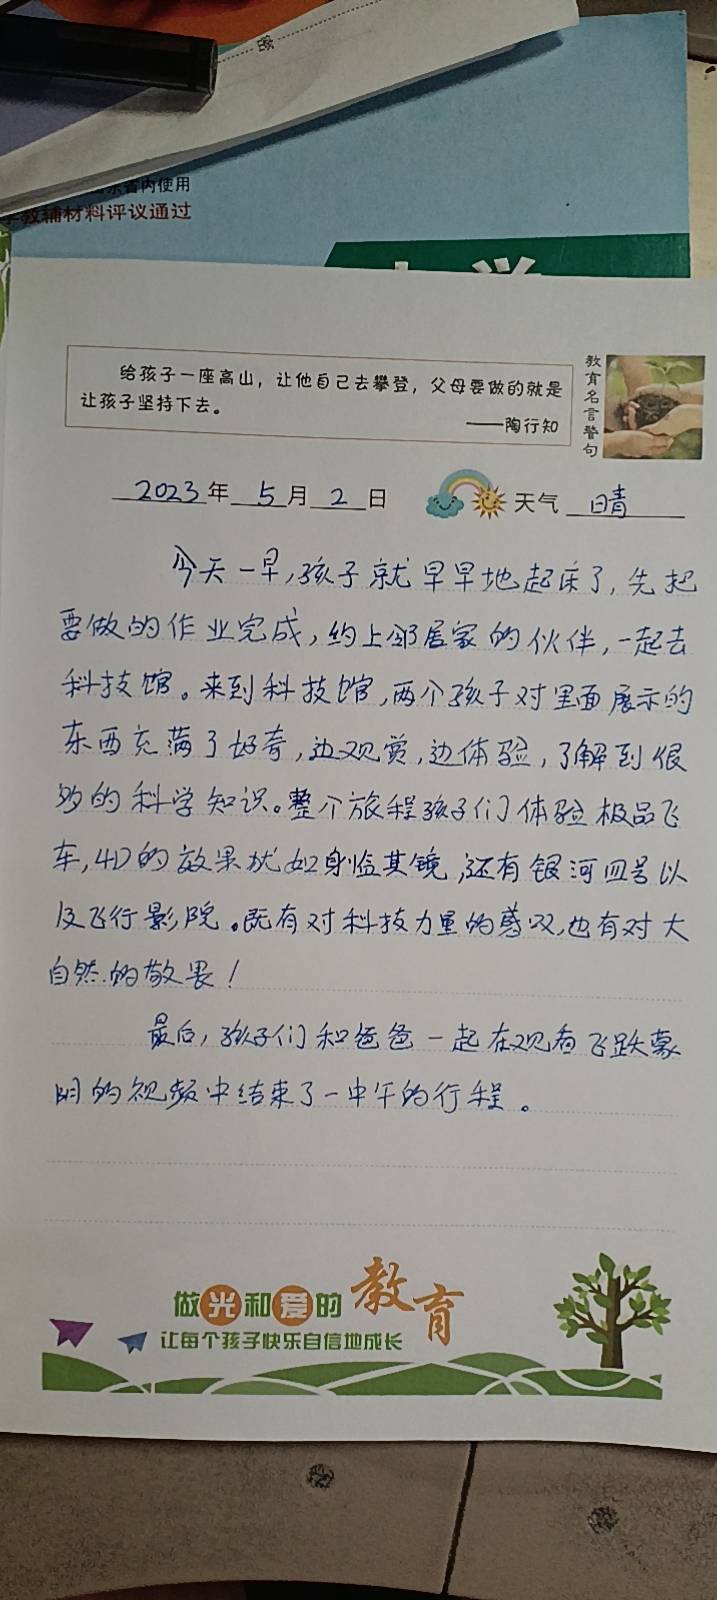 密
东省内使用
学教辅材料评议通过
给孩子一座高山，让他自己去攀登，父母要做的就是
让孩子坚持下去。
——陶行知
教育名言警句
2023年5月2日 天气 晴
今天一早，孩子就早早地起床了，先把
要做的作业完成，约上邻居家的伙伴，一起去
科技馆。来到科技馆，两个孩子对里面展示的
东西充满了好奇，边观赏，边体验，了解到很
多的科学知识。整个旅程孩子们体验极品飞
车，4D的效果犹如身临其镜，还有银河四号以
及飞行影院。既有对科技力量的尊叹，也有对大
自然的敬畏！
最后，孩子们和爸爸一起在观看飞跃蒙
明的视频中结束了一中午的行程。
做光和爱的教育
让每个孩子快乐自信地成长